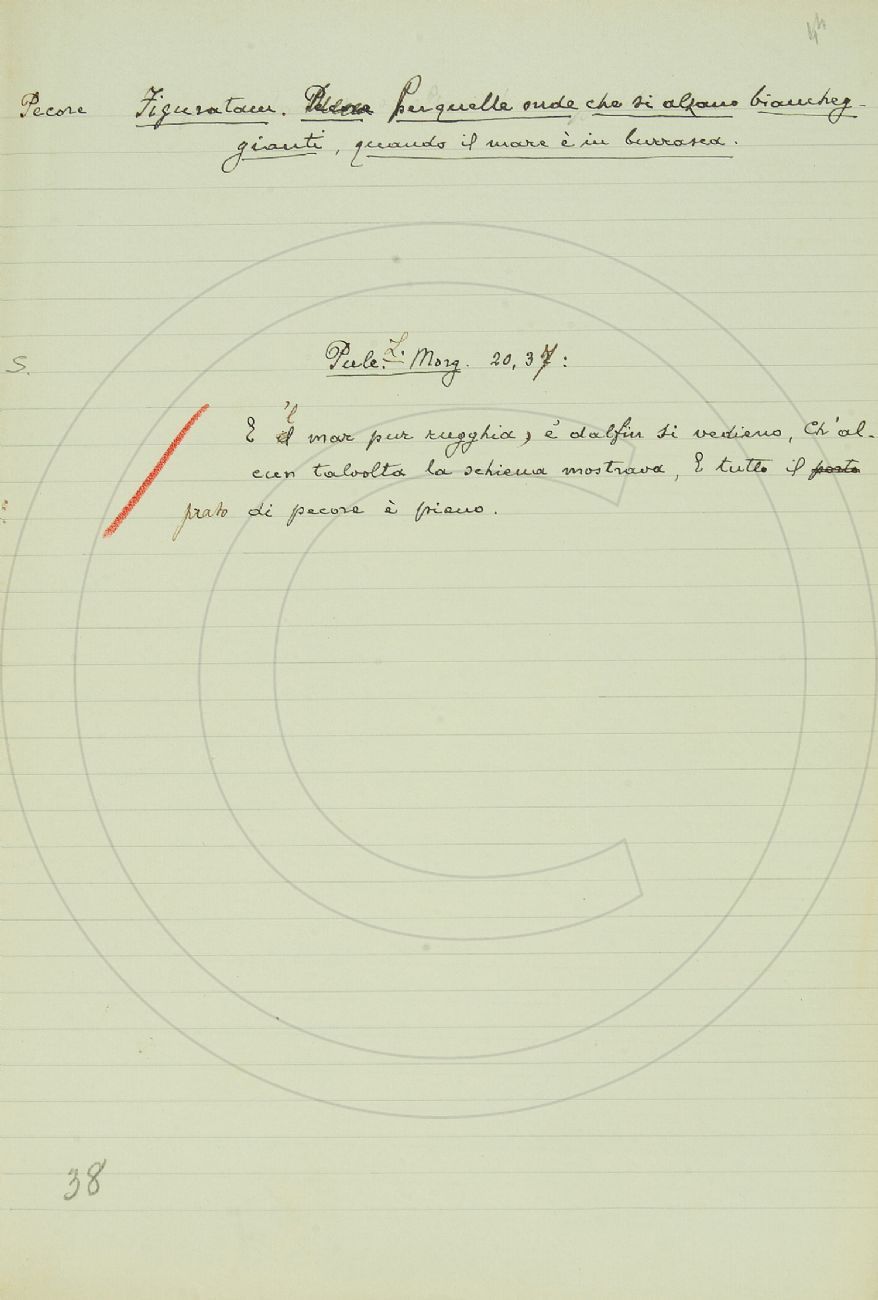 Pecore Figuratam. Per quelle onde che si alzano biancheg-
gianti, quando il mare è in burrasca.
S. Pulc. L. Morg. 20, 37:
E 'l mar pur rugghia, e' dalfin si vedieno, Ch'al-
cun talvolta la schiena mostrava, E tutto il porto
prato di pecore è pieno.
38